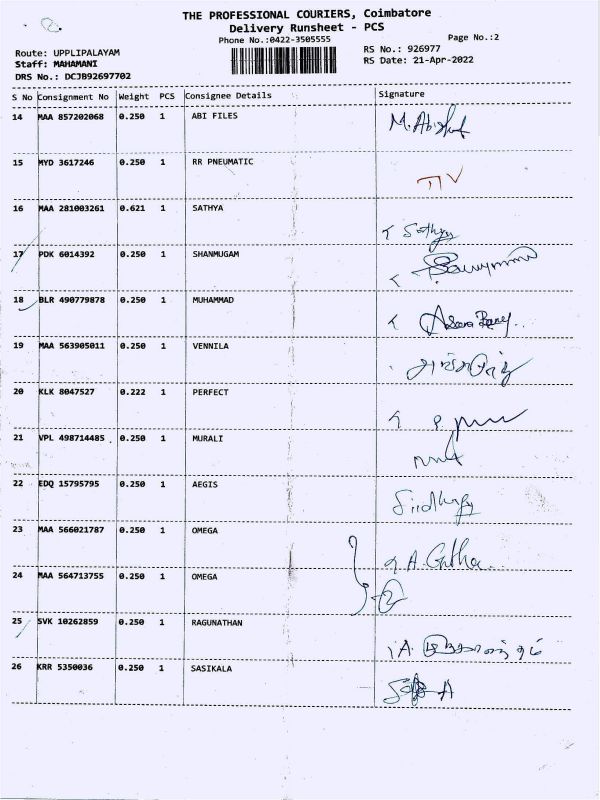 THE PROFESSIONAL COURIERS, Coimbatore
Delivery Runsheet - PCS
Phone No.:0422-3505555 Page No.:2
Route: UPPLIPALAYAM RS No.: 926977
Staff: MAHAMANI RS Date: 21-Apr-2022
DRS No.: DCJB92697702
S No Consignment No Weight PCS Consignee Details Signature
14 MAA 857202068 0.250 1 ABI FILES
15 MYD 3617246 0.250 1 RR PNEUMATIC
16 MAA 281003261 0.621 1 SATHYA Sathya
17 PDK 6014392 0.250 1 SHANMUGAM
18 BLR 490779878 0.250 1 MUHAMMAD
19 MAA 563905011 0.250 1 VENNILA
20 KLK 8047527 0.222 1 PERFECT
21 VPL 498714485 0.250 1 MURALI
22 EDQ 15795795 0.250 1 AEGIS
23 MAA 566021787 0.250 1 OMEGA
24 MAA 564713755 0.250 1 OMEGA
25 SVK 10262859 0.250 1 RAGUNATHAN
26 KRR 5350036 0.250 1 SASIKALA